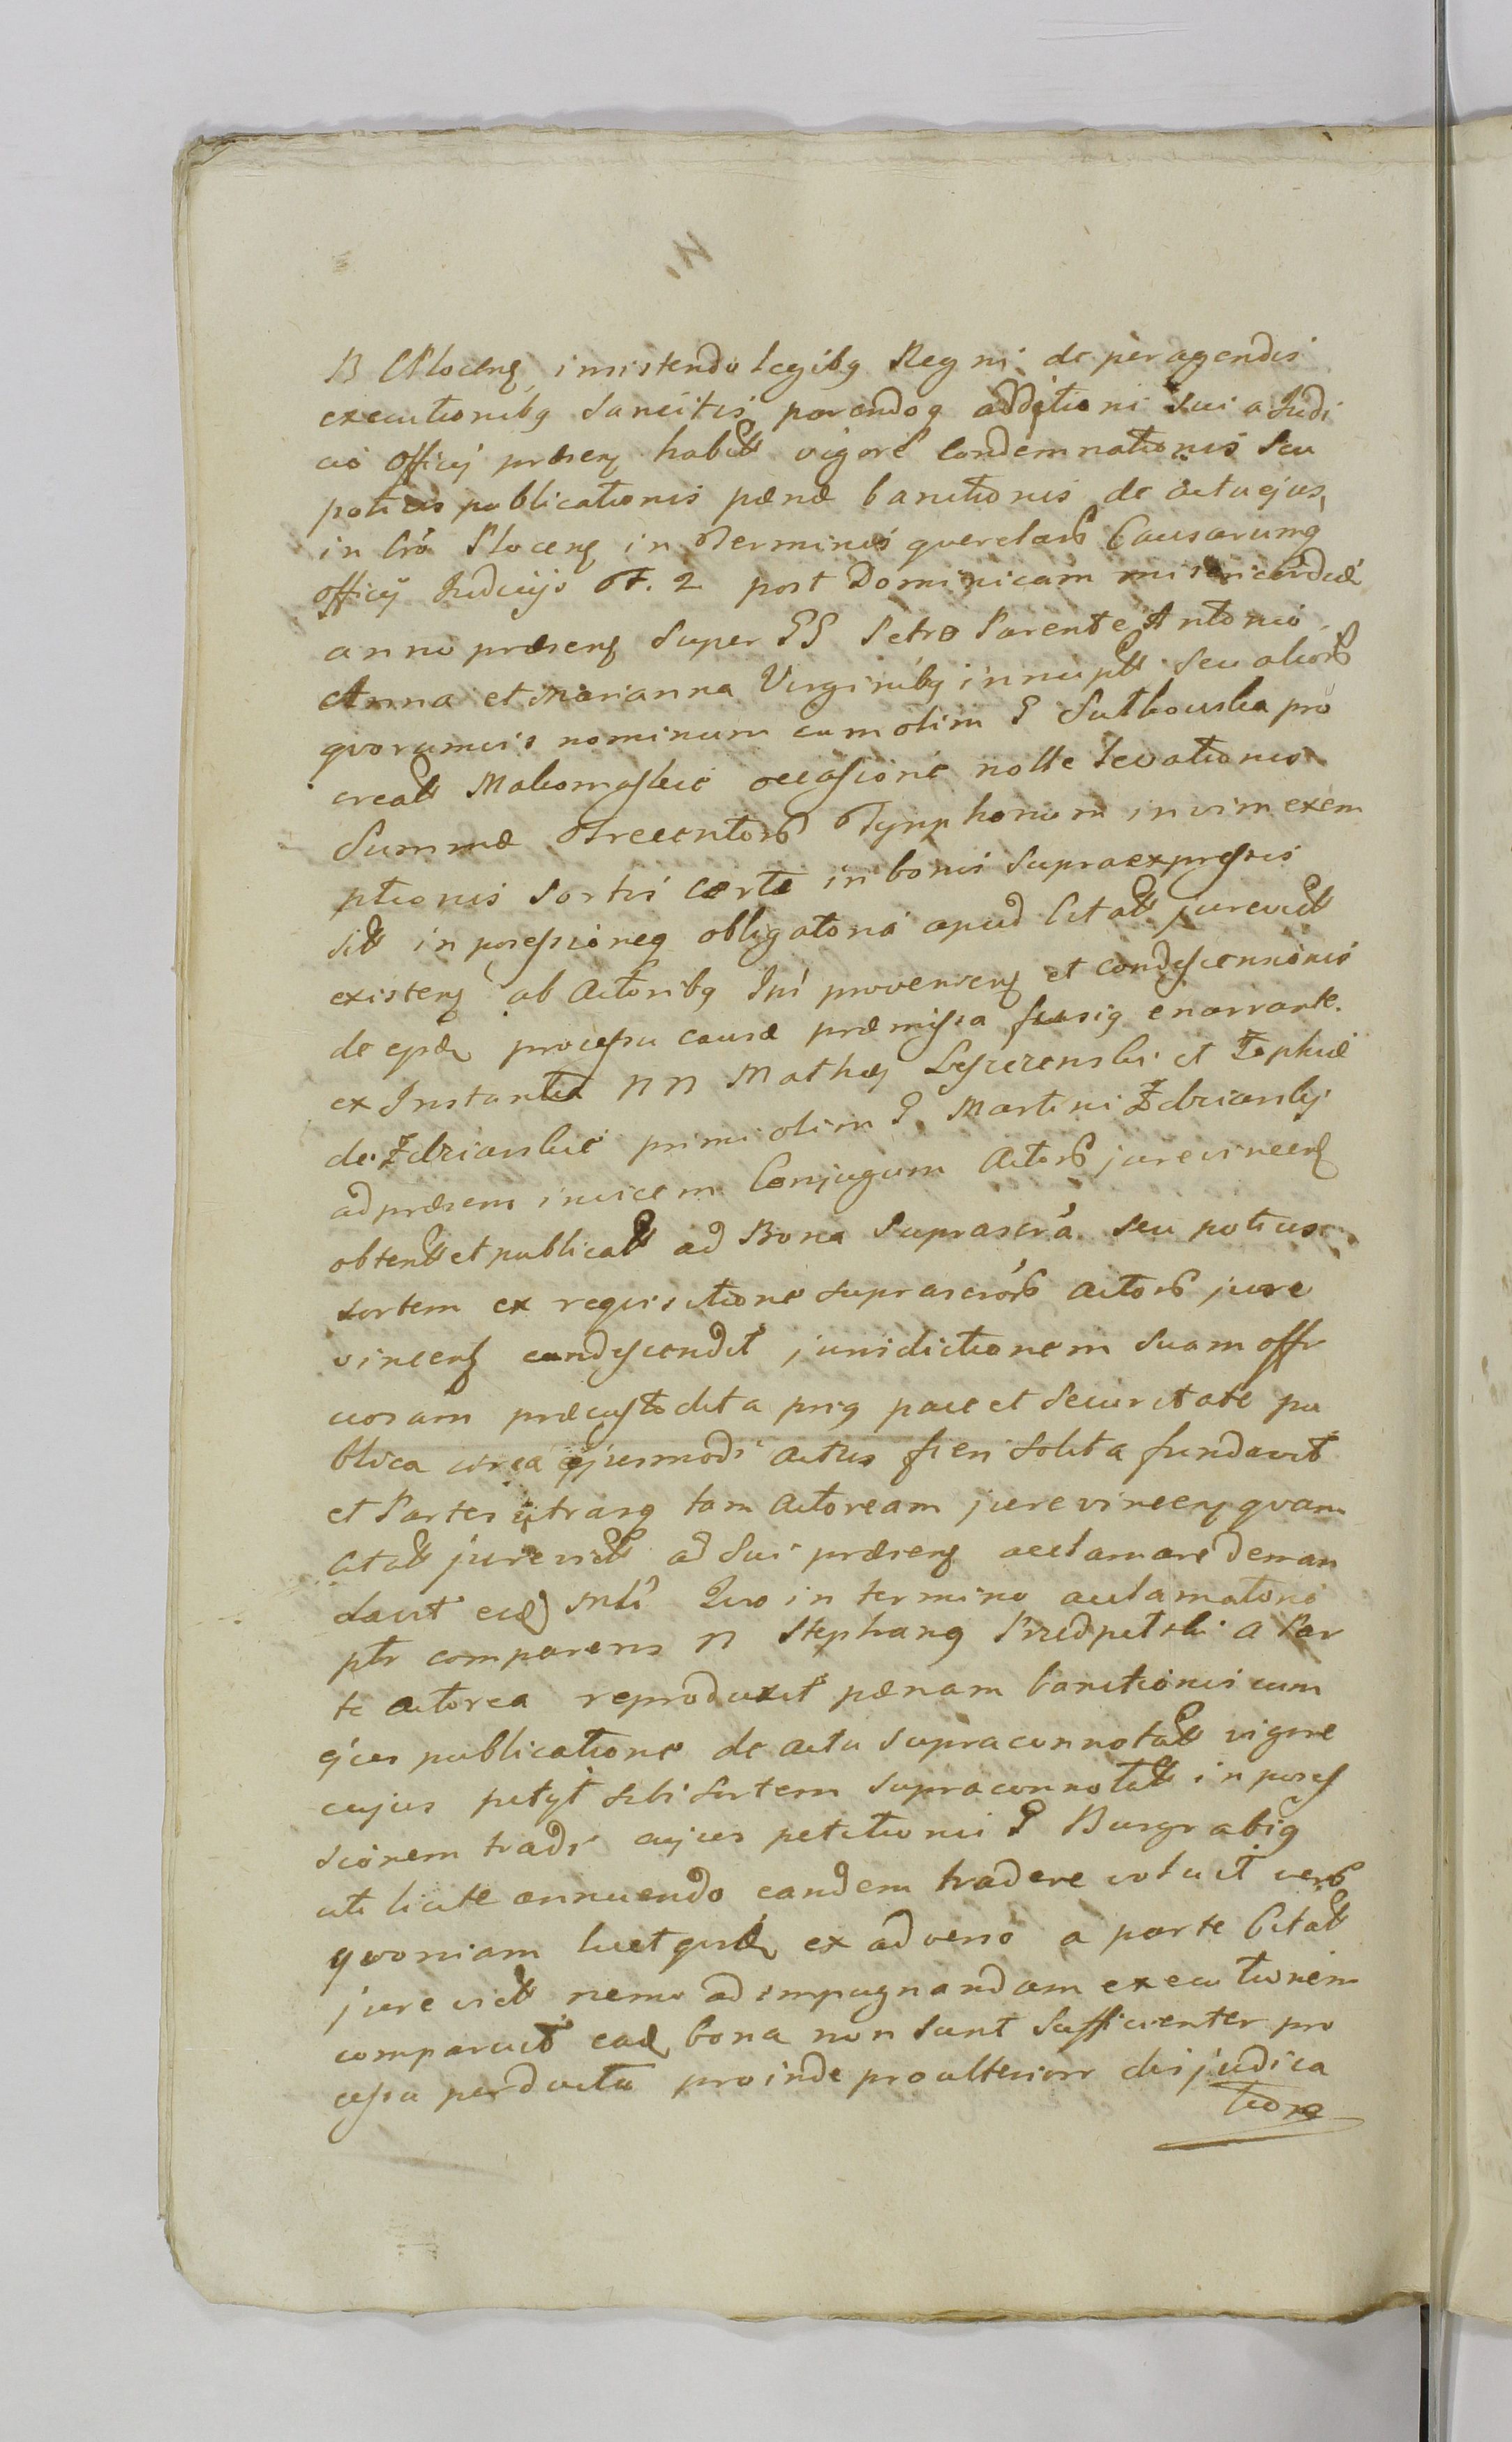 B Plocens, insistendo legibq Regni de peragendis
executionibq Sancitis, parendoq additioni Sui a Judi
cio Officij præsens habitt vigore Condemnationis Seu
potius publicationis pænæ banitionis de actu ejus,
in Cro Plocens in Terminis querelarb Causarumq
officij Judicijs F. 2 post Dominicam misericordiæ
anno præsens Super PP Petro Parente Antonio
Anna et Marianna Virginibq innuptt Seu aliorb
quorumvis nominum cum olim P Sutkowska pro
creatt Makomaskie occasione nolle levationis
Summæ Trecentorb Tynphonum in vim exem
ptionis Sortis Certæ in bonis Supraexpressis
sitt in possessioneq obligatoria apud Citatt jurevictt
existens ab Actoribq Ipsi proveniens et condescensionis
de epdn processu causæ præmissa fusiq enarrante.
ex Instantia NN Mathæi Leszczenski et Zophiæ
de Zdzianskie primi olim P. Martini Zdzianskj
ad præsens invicem Conjugum Actorb jurevincens
obtentt et publicatt ad Bona Suprascra Seu potius
sortem ex requisitione suprascrorb actorb jure
vincens condescendit jurisdictionem Suam offi
ciosam præcustodita priq pace et Securitate pu
blica circa ejusmodi actus fieri Solita fundavit
et Partes utrasq tam Actoream jurevincens quam
Citatt jurevictt ad Sui præsens acclamare deman
davit eidem Mli Quo in termino acclamatorio
ptr comparens N Stephanq Przedpełski a Par
te actorea reproduxit pænam banitionis cum
ejus publicatione de actu Supraconnotatt vigore
cujus petijt sibi Sortem Supraconnotatt in poses
sionem tradi cujus petitioni P Burgrabiq
uti licite annuendo eandem tradere voluit verb
quoniam licet quid ex adverso a parte Citatt
jurevictt nemo ad impugnandam executionem
comparuit eadn bona non Sunt Sufficienter pro
cessu perducta proinde pro ulteriori disjudica
tione